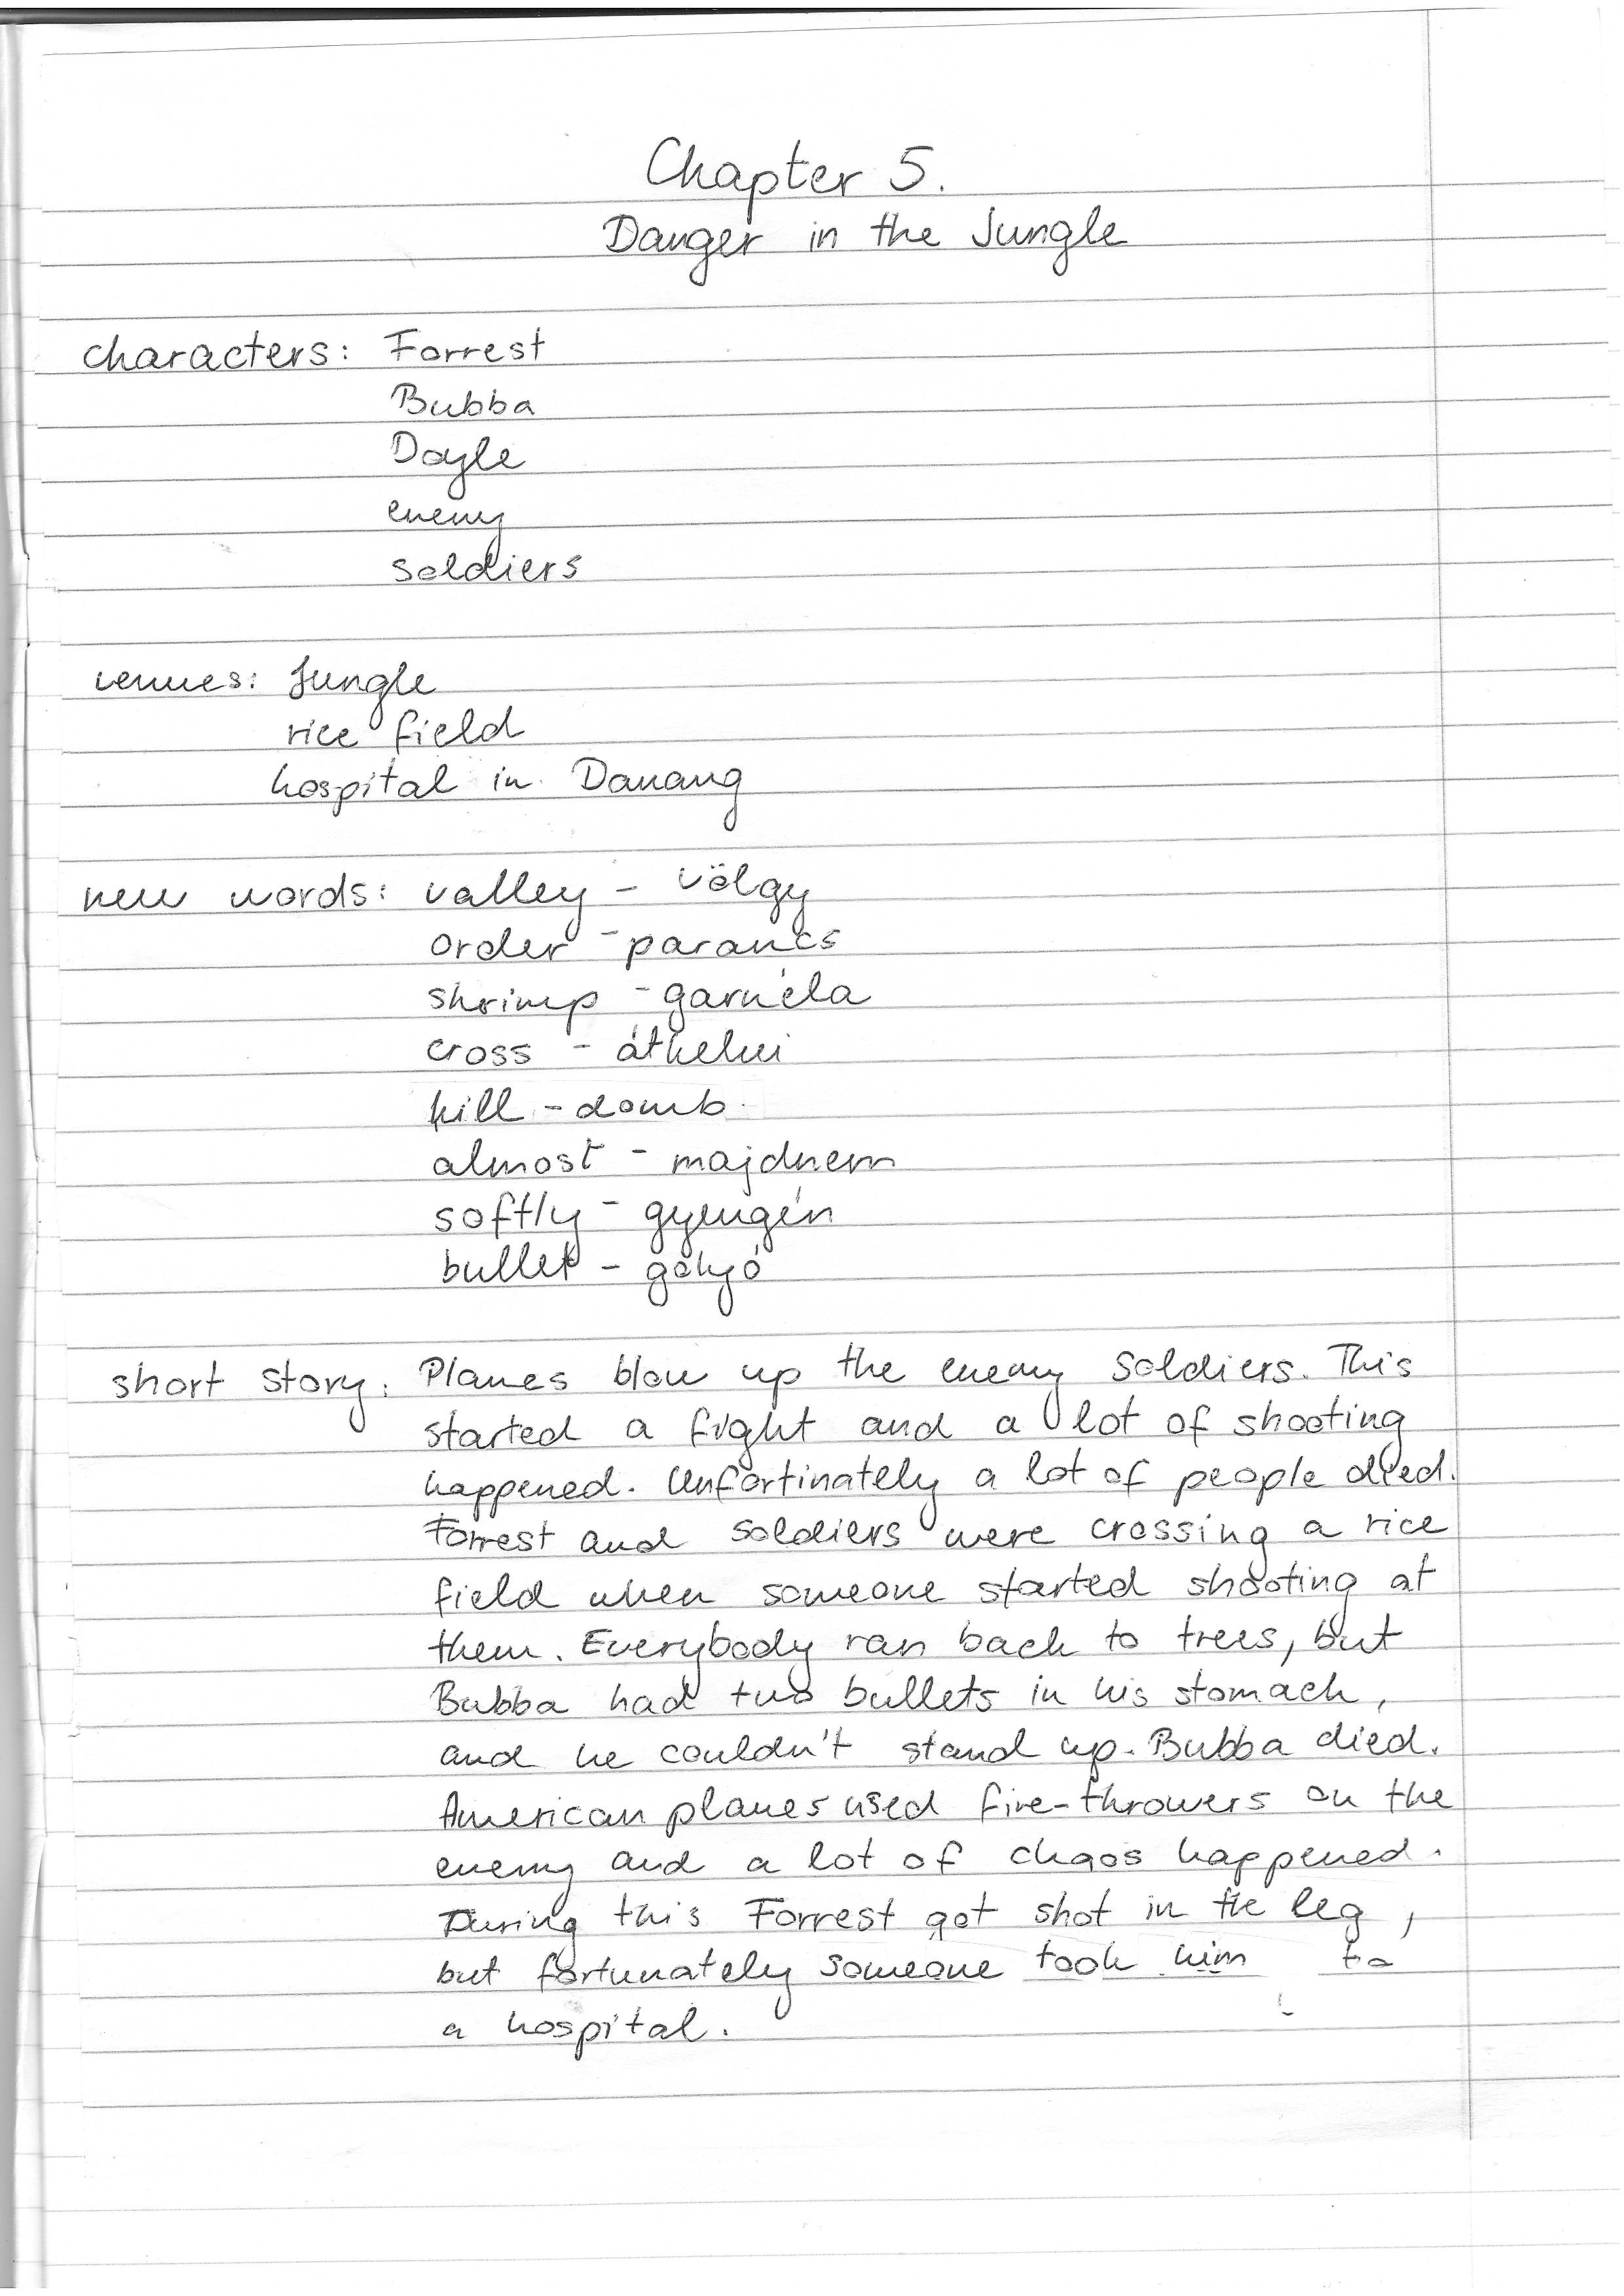 Chapter 5.
Danger in the Jungle
characters: Forrest
Bubba
Doyle
enemy
soldiers
venues: Jungle
rice field
hospital in Danang
new words: valley - völgy
order - parancs
shrimp - garnéla
cross - átkelni
hill - domb
almost - majdnem
softly - gyengén
bullet - golyó
short story: Planes blow up the enemy soldiers. This
started a fight and a lot of shooting
happened. Unfortinately a lot of people died.
Forrest and soldiers were crossing a rice
field when someone started shooting at
them. Everybody ran back to trees, but
Bubba had two bullets in his stomach,
and he couldn't stand up. Bubba died.
American planes used fire-throwers on the
enemy and a lot of chaos happened.
During this Forrest got shot in the leg,
but fortunately someone took him to
a hospital.